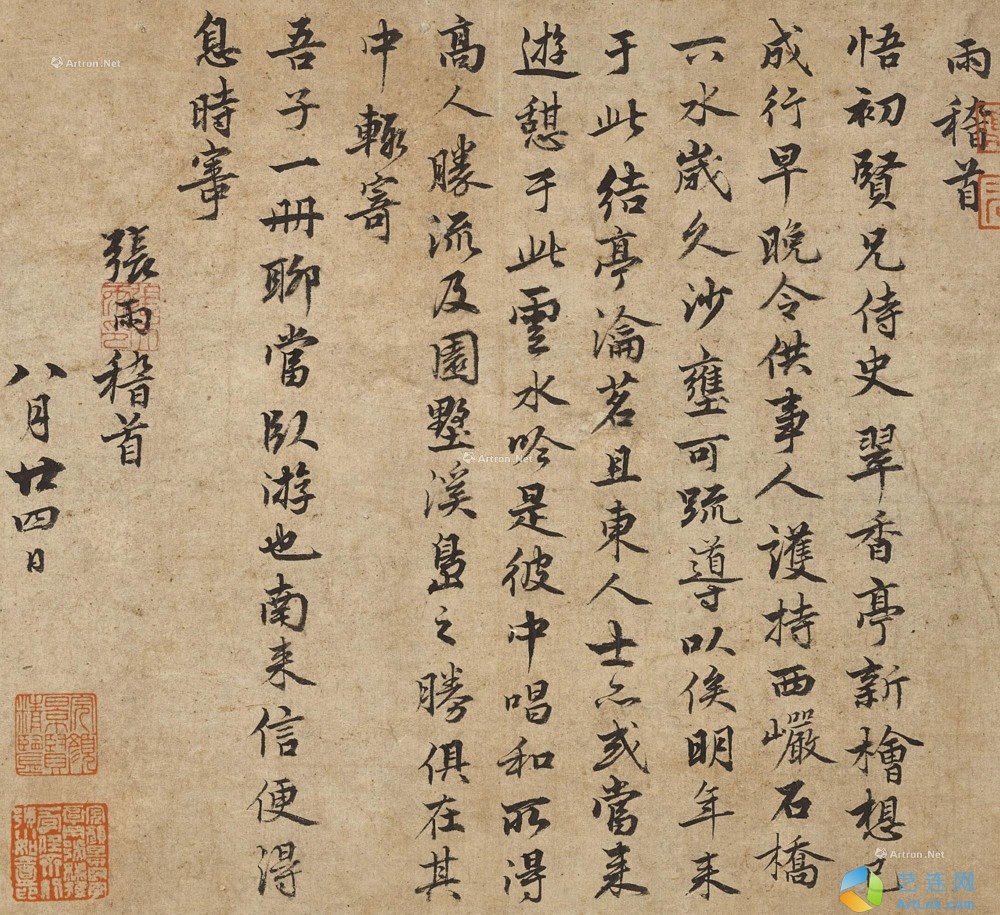 雨稽首
悟初賢兄侍史翠香亭新檜想已
成行早晚令供事人護持西巖石橋
下水歲久沙壅可疏導以俟明年来
于此結亭瀹茗且東人士亦或當来
遊憇于此雲水吟是彼中唱和所得
高人勝流及園墅溪島之勝俱在其
中輒寄
吾子一冊聊當臥游也南来信便得
息時寄
張雨稽首
八月廿四日
Artron.Net
Artron.Net
Artron.Net
艺连网
ArtLnk.com